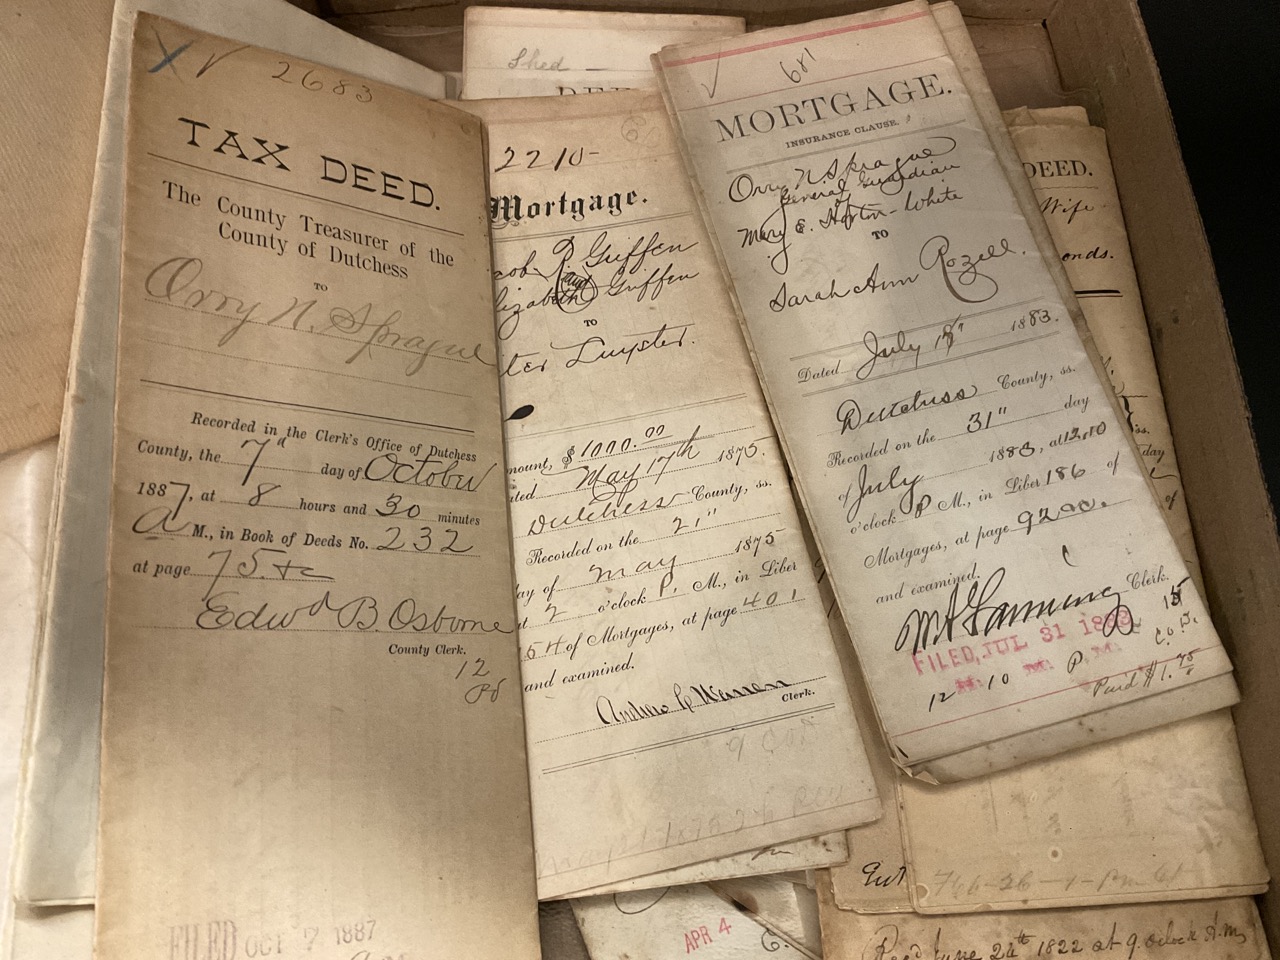 2683
TAX DEED.
The County Treasurer of the
County of Dutchess
TO
Orry N. Sprague
Recorded in the Clerk's Office of Dutchess
County, the 7" day of October
1887, at 8 hours and 30 minutes
a M., in Book of Deeds No. 232
at page 75. &c
Edwd B. Osborne
County Clerk.
12
Pd
FILED OCT 7 1887
Shed —
2210-
Mortgage.
cob P. Griffen
and
lizabeth Griffen
TO
ter Luyster.
mount, $1000.00
ted May 17th 1875.
Dutchess County, ss.
Recorded on the 21"
ay of May 1875
at 2 o'clock P. M., in Liber
54 of Mortgages, at page 401
and examined.
Clerk.
681
MORTGAGE.
INSURANCE CLAUSE.
Orry N Sprague
General Guardian
of
Mary E. Horton-White
TO
Sarah Ann Rozell.
Dated July 1883.
Dutchess County, ss.
Recorded on the 31" day
of July 1883, at 12,10
o'clock P M., in Liber 186 of
Mortgages, at page 92
and examined.
Clerk.
FILED, JUL 31 1883
12 10 P. M.
DEED.
Wife
onds.
ss.
day
of
APR 4
Recd June 24th 1822 at 9. oclock A.M,